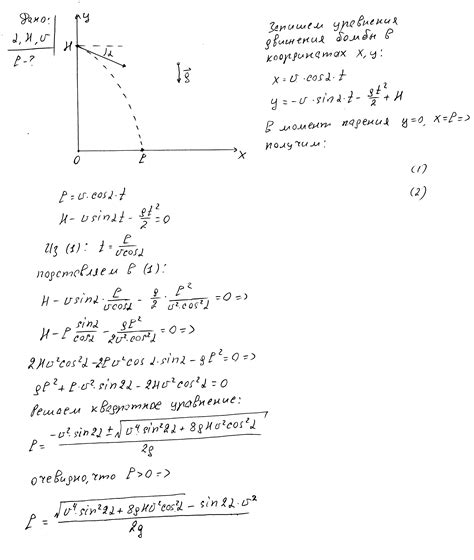 Дано:
α, H, v
ℓ-?
y
H
α
g⃗
0
ℓ
x
Запишем уравнения
движения бомбы в
координатах x, y:
x = v · cosα · t
y = -v · sinα · t - gt²/2 + H
В момент падения y=0, x=ℓ =>
получим:
(1)
(2)
ℓ = v · cosα · t
H - v sinα t - gt²/2 = 0
Из (1): t = ℓ/(v cosα)
подставляем в (1):
H - v sinα · ℓ/(v cosα) - g/2 · ℓ²/(v² · cos²α) = 0 =>
H - ℓ sinα/cosα - gℓ²/(2v² · cos²α) = 0 =>
2Hv²cos²α - 2ℓv²cosα · sinα - gℓ² = 0 =>
gℓ² + ℓ · v² · sin2α - 2Hv²cos²α = 0
Решаем квадратное уравнение:
ℓ = (-v² · sin2α ± √(v⁴ · sin²2α + 8gHv²cos²α))/2g
очевидно, что ℓ>0 =>
ℓ = (√(v⁴ · sin²2α + 8gHv²cos²α) - sin2α · v²)/2g